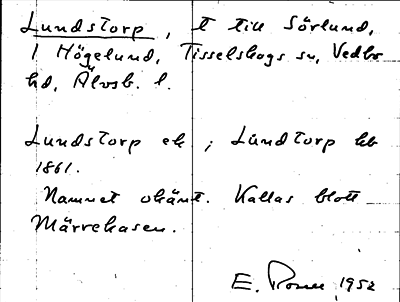 Lundstorp, t till Sörlund,
1 Högelund, Tisselskogs sn, Vedbo
hd, Älvsb. l.
Lundstorp ek ; Lundtorp kb
1861.
Namnet okänt. Kallas blott
Märrehasen.
E. 1952